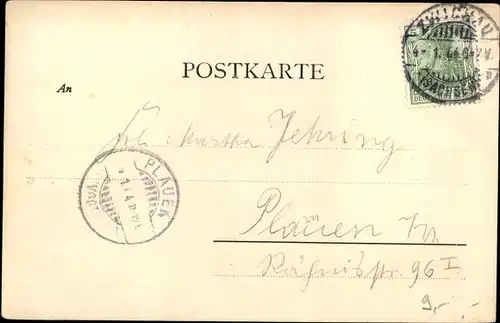 ZWICKAU
(SACHSEN)
POSTKARTE
An
Frl. Martha Jehring
PLAUEN
(VOGTL.)
Plauen i/V
Rähnisstr. 96 I
9,-